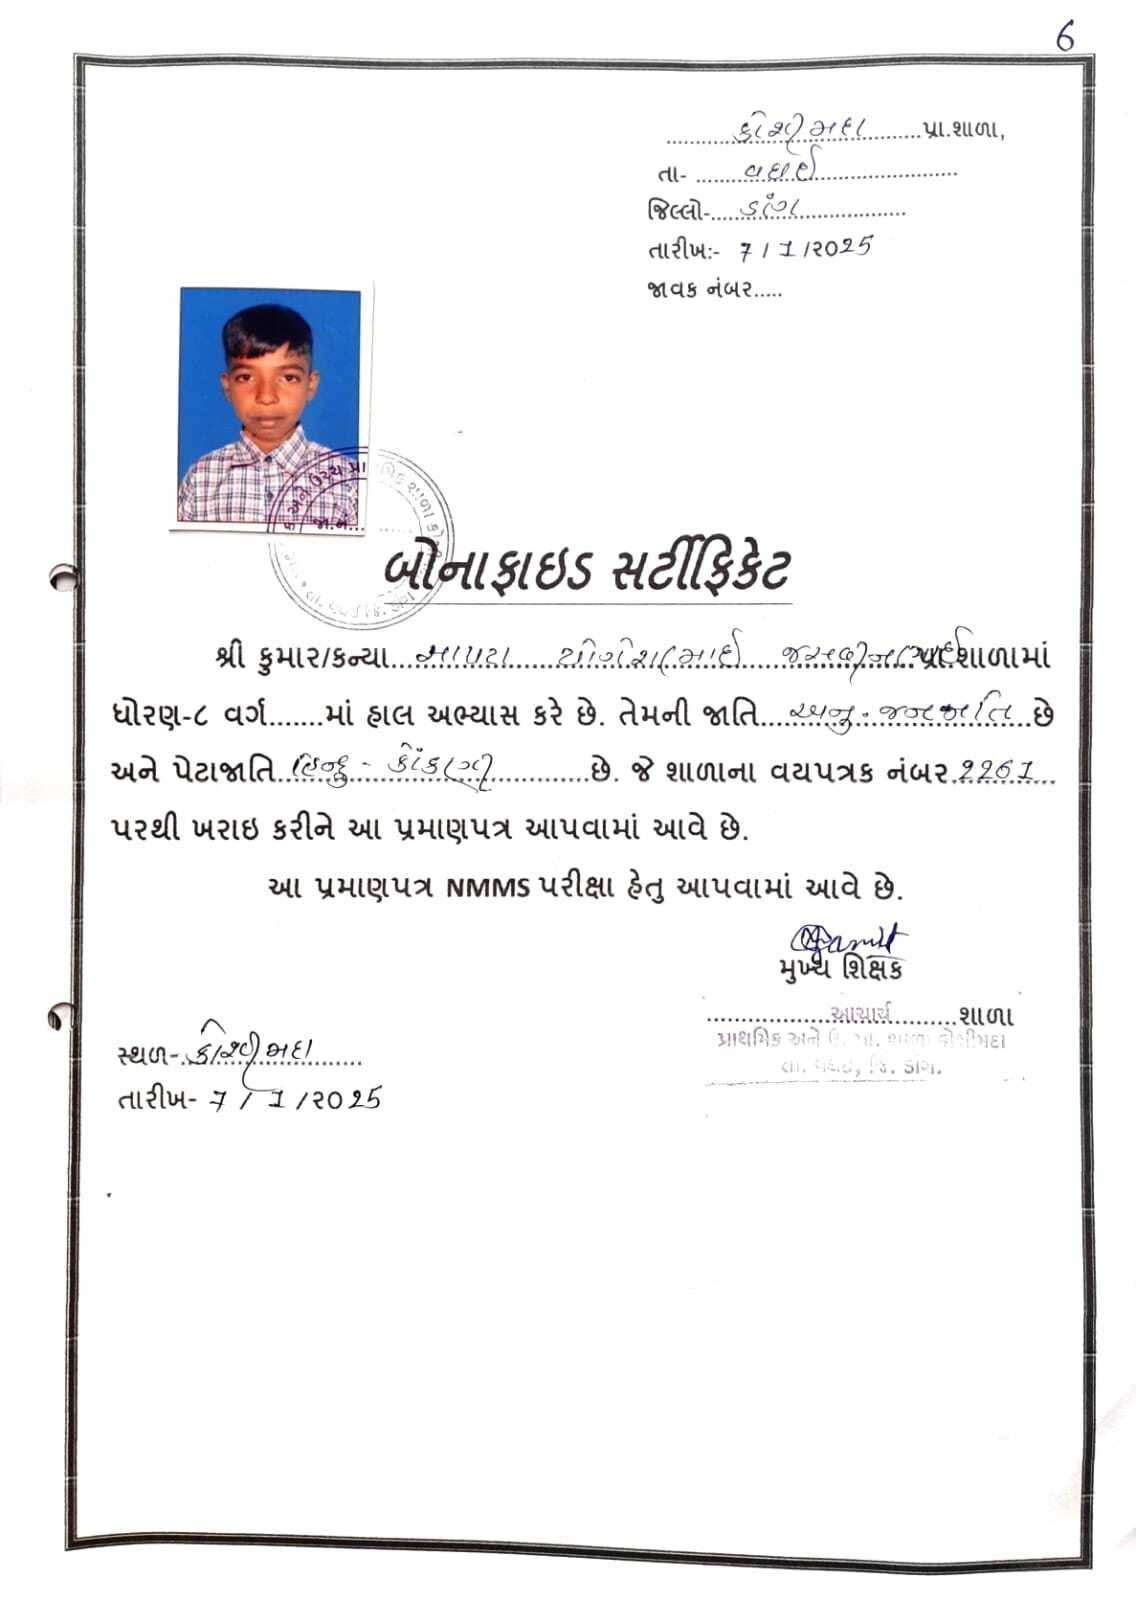 6
કોશીમદા પ્રા.શાળા,
તા- વઘઈ
જિલ્લો- ડાંગ
તારીખ:- 7/1/૨૦25
જાવક નંબર.....
અને ઉચ્ચ પ્રાથમિક શાળા
જા.નં......
બોનાફાઇડ સર્ટીફિકેટ
શ્રી કુમાર/કન્યા... યોગેશભાઈ ... પ્રા શાળામાં
ધોરણ-૮ વર્ગ.......માં હાલ અભ્યાસ કરે છે. તેમની જાતિ...અનુ. જનજાતિ...છે
અને પેટાજાતિ હિન્દુ - કોંકણી છે. જે શાળાના વયપત્રક નંબર 2261
પરથી ખરાઇ કરીને આ પ્રમાણપત્ર આપવામાં આવે છે.
આ પ્રમાણપત્ર NMMS પરીક્ષા હેતુ આપવામાં આવે છે.
મુખ્ય શિક્ષક
આચાર્ય શાળા
પ્રાથમિક અને ઉ. પ્રા. શાળા કોશીમદા
તા. વઘઈ, જિ. ડાંગ.
સ્થળ- કોશીમદા
તારીખ- 7/1/૨૦25